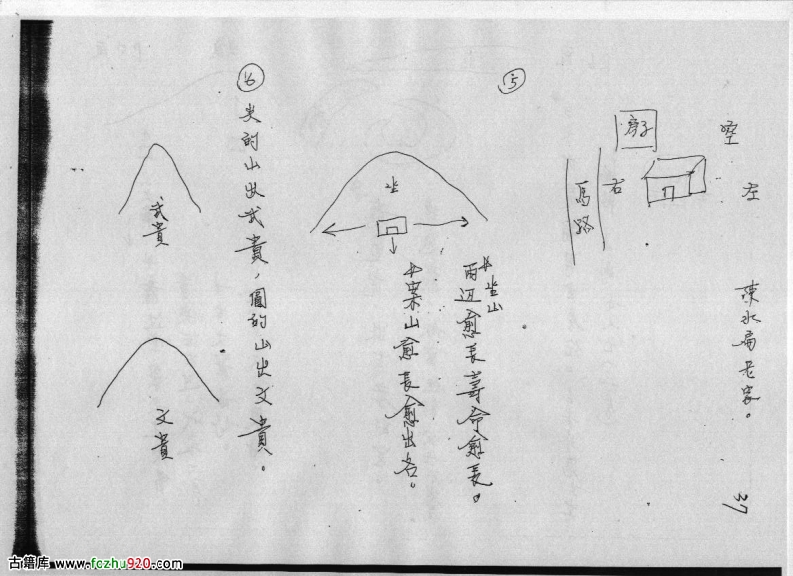 陳水扁老家。
37
左
空
房子
右
馬路
⑤
*坐山
兩边愈長壽命愈長。
*案山愈長愈出名。
坐
⑥
尖的山出武貴，圓的山出文貴。
武貴
文貴
古籍库 www.fczhu920.com